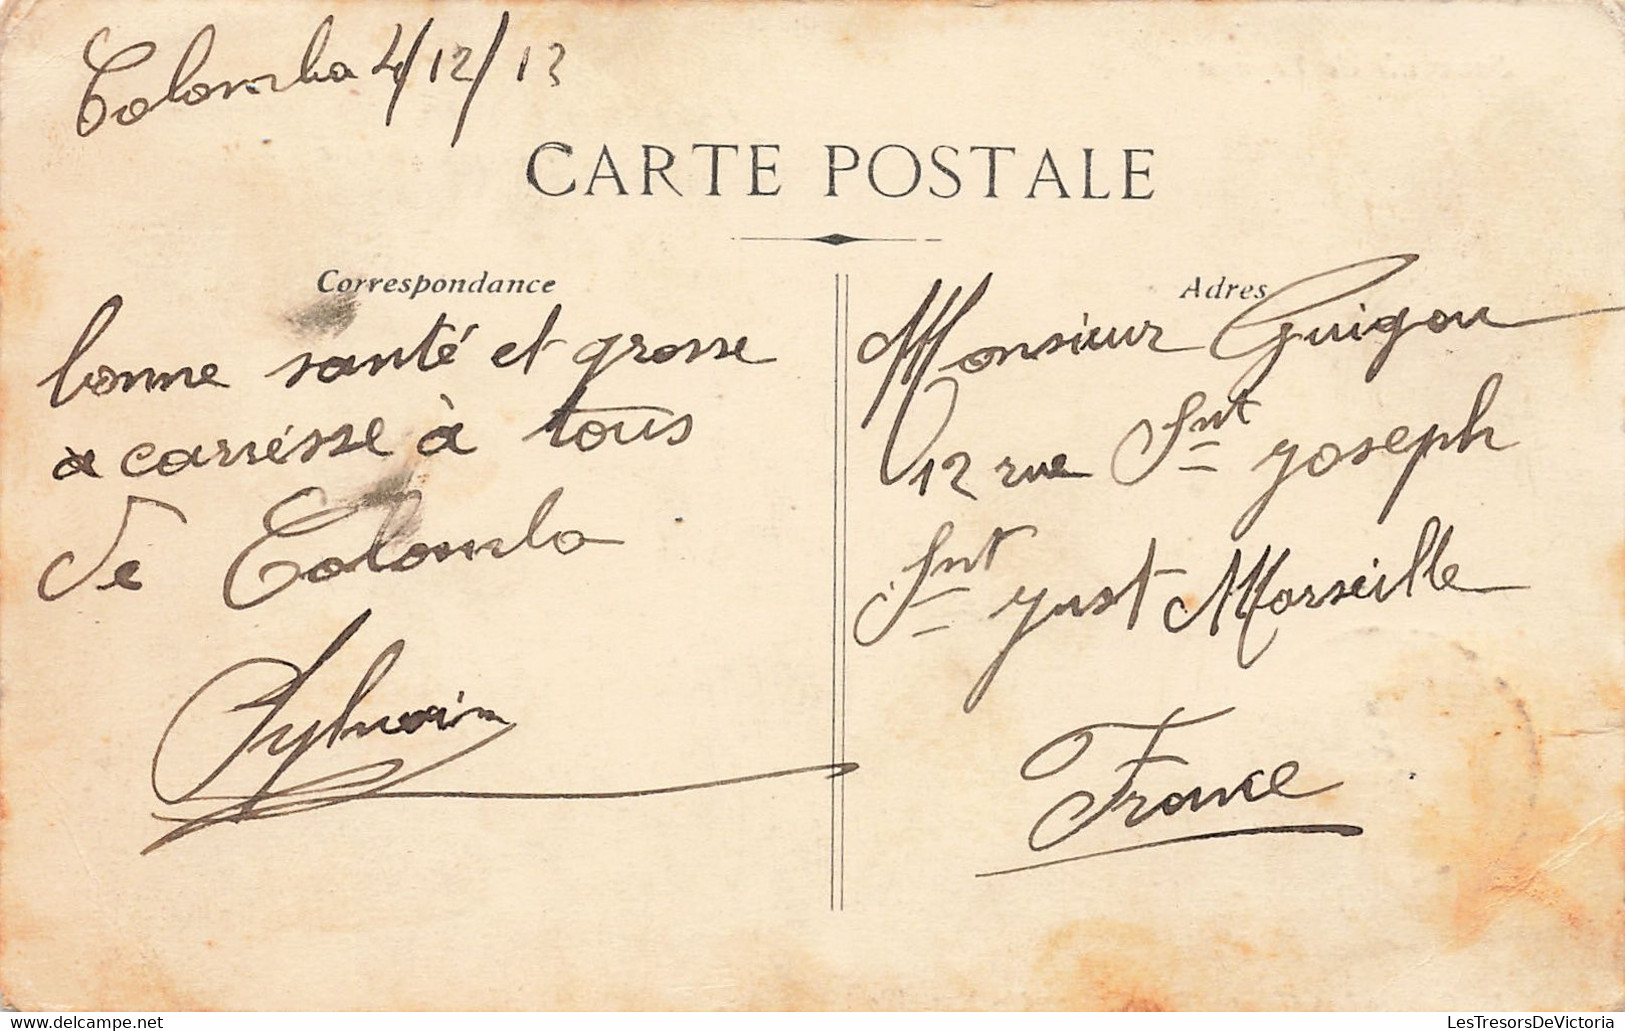 Colomba 4/12/13
CARTE POSTALE
Correspondance
bonne santé et grosse
a carresse à tous
de Colomba
Sylvain
Adres
Monsieur Guigou
12 rue Snt Joseph
Snt Just Marseille
France
LesTresorsDeVictoria